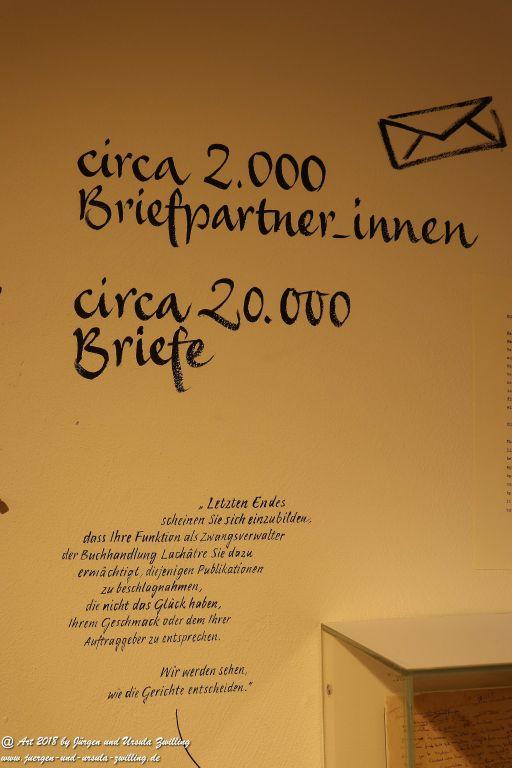 circa 2.000
Briefpartner_innen
circa 20.000
Briefe
„Letzten Endes
scheinen Sie sich einzubilden,
dass Ihre Funktion als Zwangsverwalter
der Buchhandlung Lachâtre Sie dazu
ermächtigt, diejenigen Publikationen
zu beschlagnahmen,
die nicht das Glück haben,
Ihrem Geschmack oder dem Ihrer
Auftraggeber zu entsprechen.
Wir werden sehen,
wie die Gerichte entscheiden."
@ Art 2018 by Jürgen und Ursula Zwilling
www.juergen-und-ursula-zwilling.de